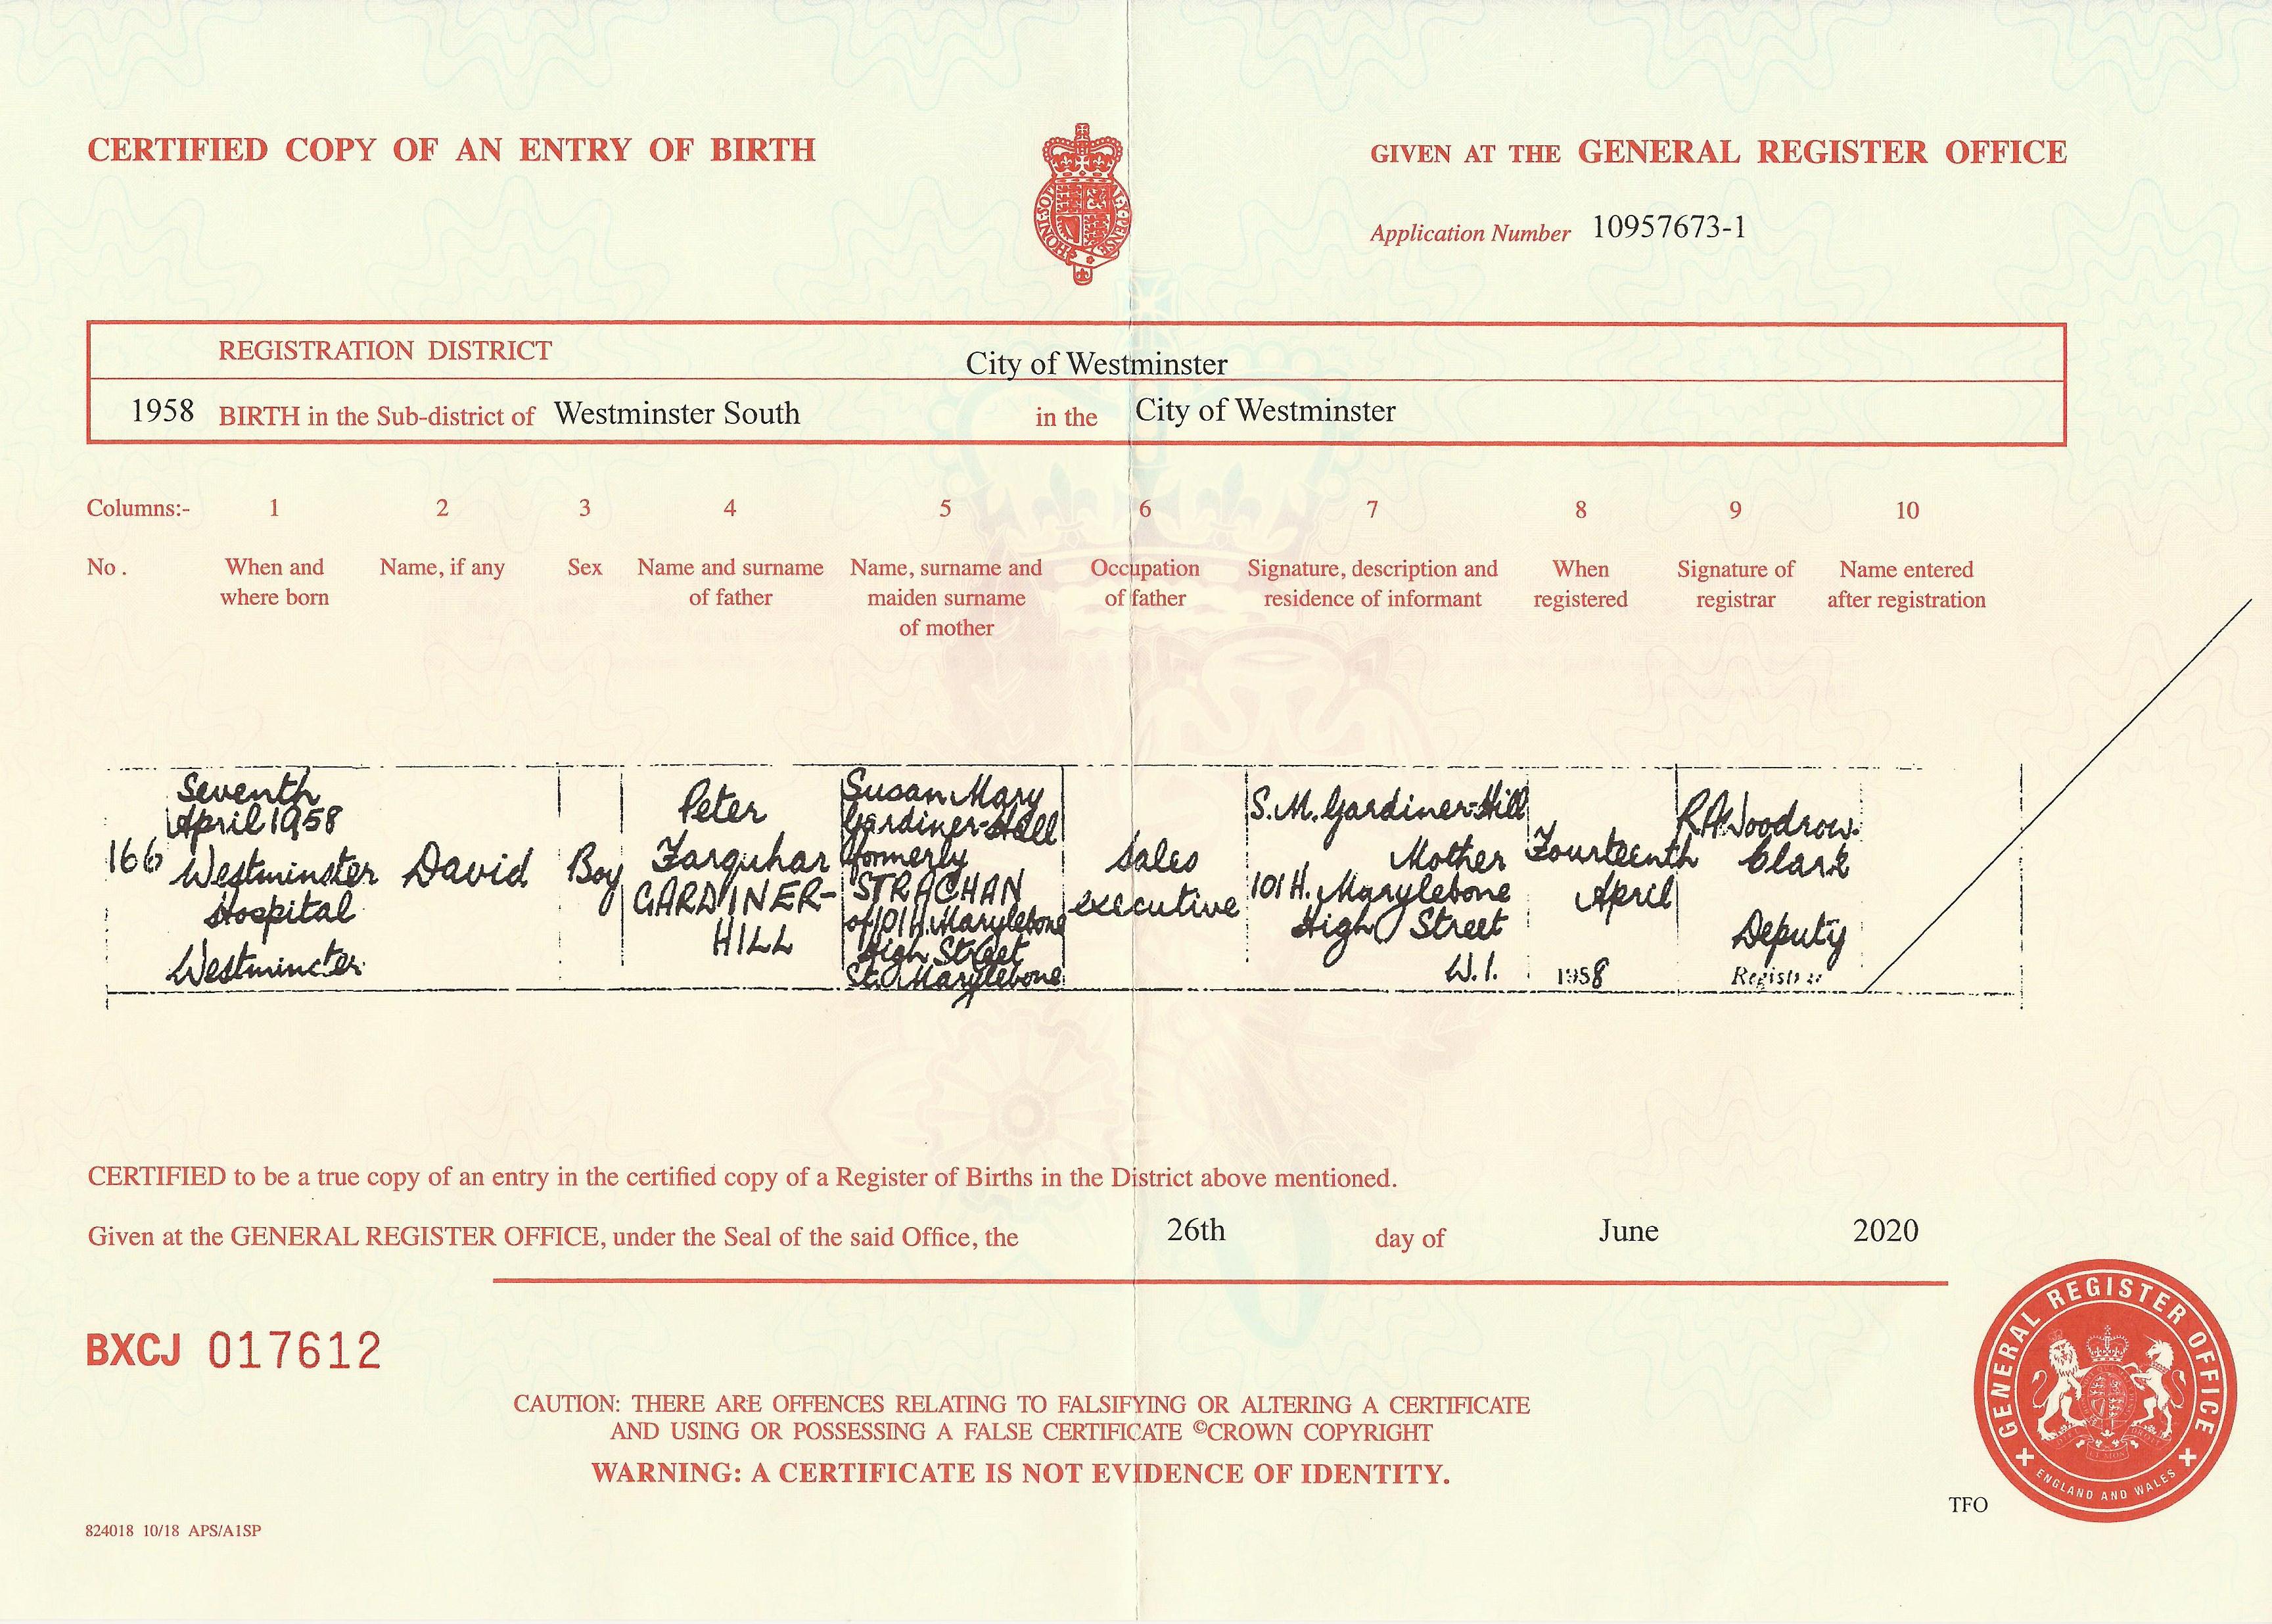 CERTIFIED COPY OF AN ENTRY OF BIRTH
GIVEN AT THE GENERAL REGISTER OFFICE
Application Number 10957673-1
REGISTRATION DISTRICT City of Westminster
1958 BIRTH in the Sub-district of Westminster South in the City of Westminster
Columns:- 1 2 3 4 5 6 7 8 9 10
No. When and where born
Name, if any
Sex
Name and surname of father
Name, surname and maiden surname of mother
Occupation of father
Signature, description and residence of informant
When registered
Signature of registrar
Name entered after registration
166
Seventh
April 1958
Westminster
Hospital
Westminster
David
Boy
Peter
Farquhar
GARDINER-
HILL
Susan Mary
Gardiner-Hill
formerly
STRACHAN
of 101 H. Marylebone
High Street
St. Marylebone
Sales
executive
S.M. Gardiner-Hill
Mother
101 H. Marylebone
High Street
W.1.
Fourteenth
April
1958
R.A. Woodrow-
Clark
Deputy
Registrar
CERTIFIED to be a true copy of an entry in the certified copy of a Register of Births in the District above mentioned.
Given at the GENERAL REGISTER OFFICE, under the Seal of the said Office, the 26th day of June 2020
BXCJ 017612
CAUTION: THERE ARE OFFENCES RELATING TO FALSIFYING OR ALTERING A CERTIFICATE
AND USING OR POSSESSING A FALSE CERTIFICATE ©CROWN COPYRIGHT
WARNING: A CERTIFICATE IS NOT EVIDENCE OF IDENTITY.
GENERAL REGISTER OFFICE
ENGLAND AND WALES
TFO
824018 10/18 APS/A1SP